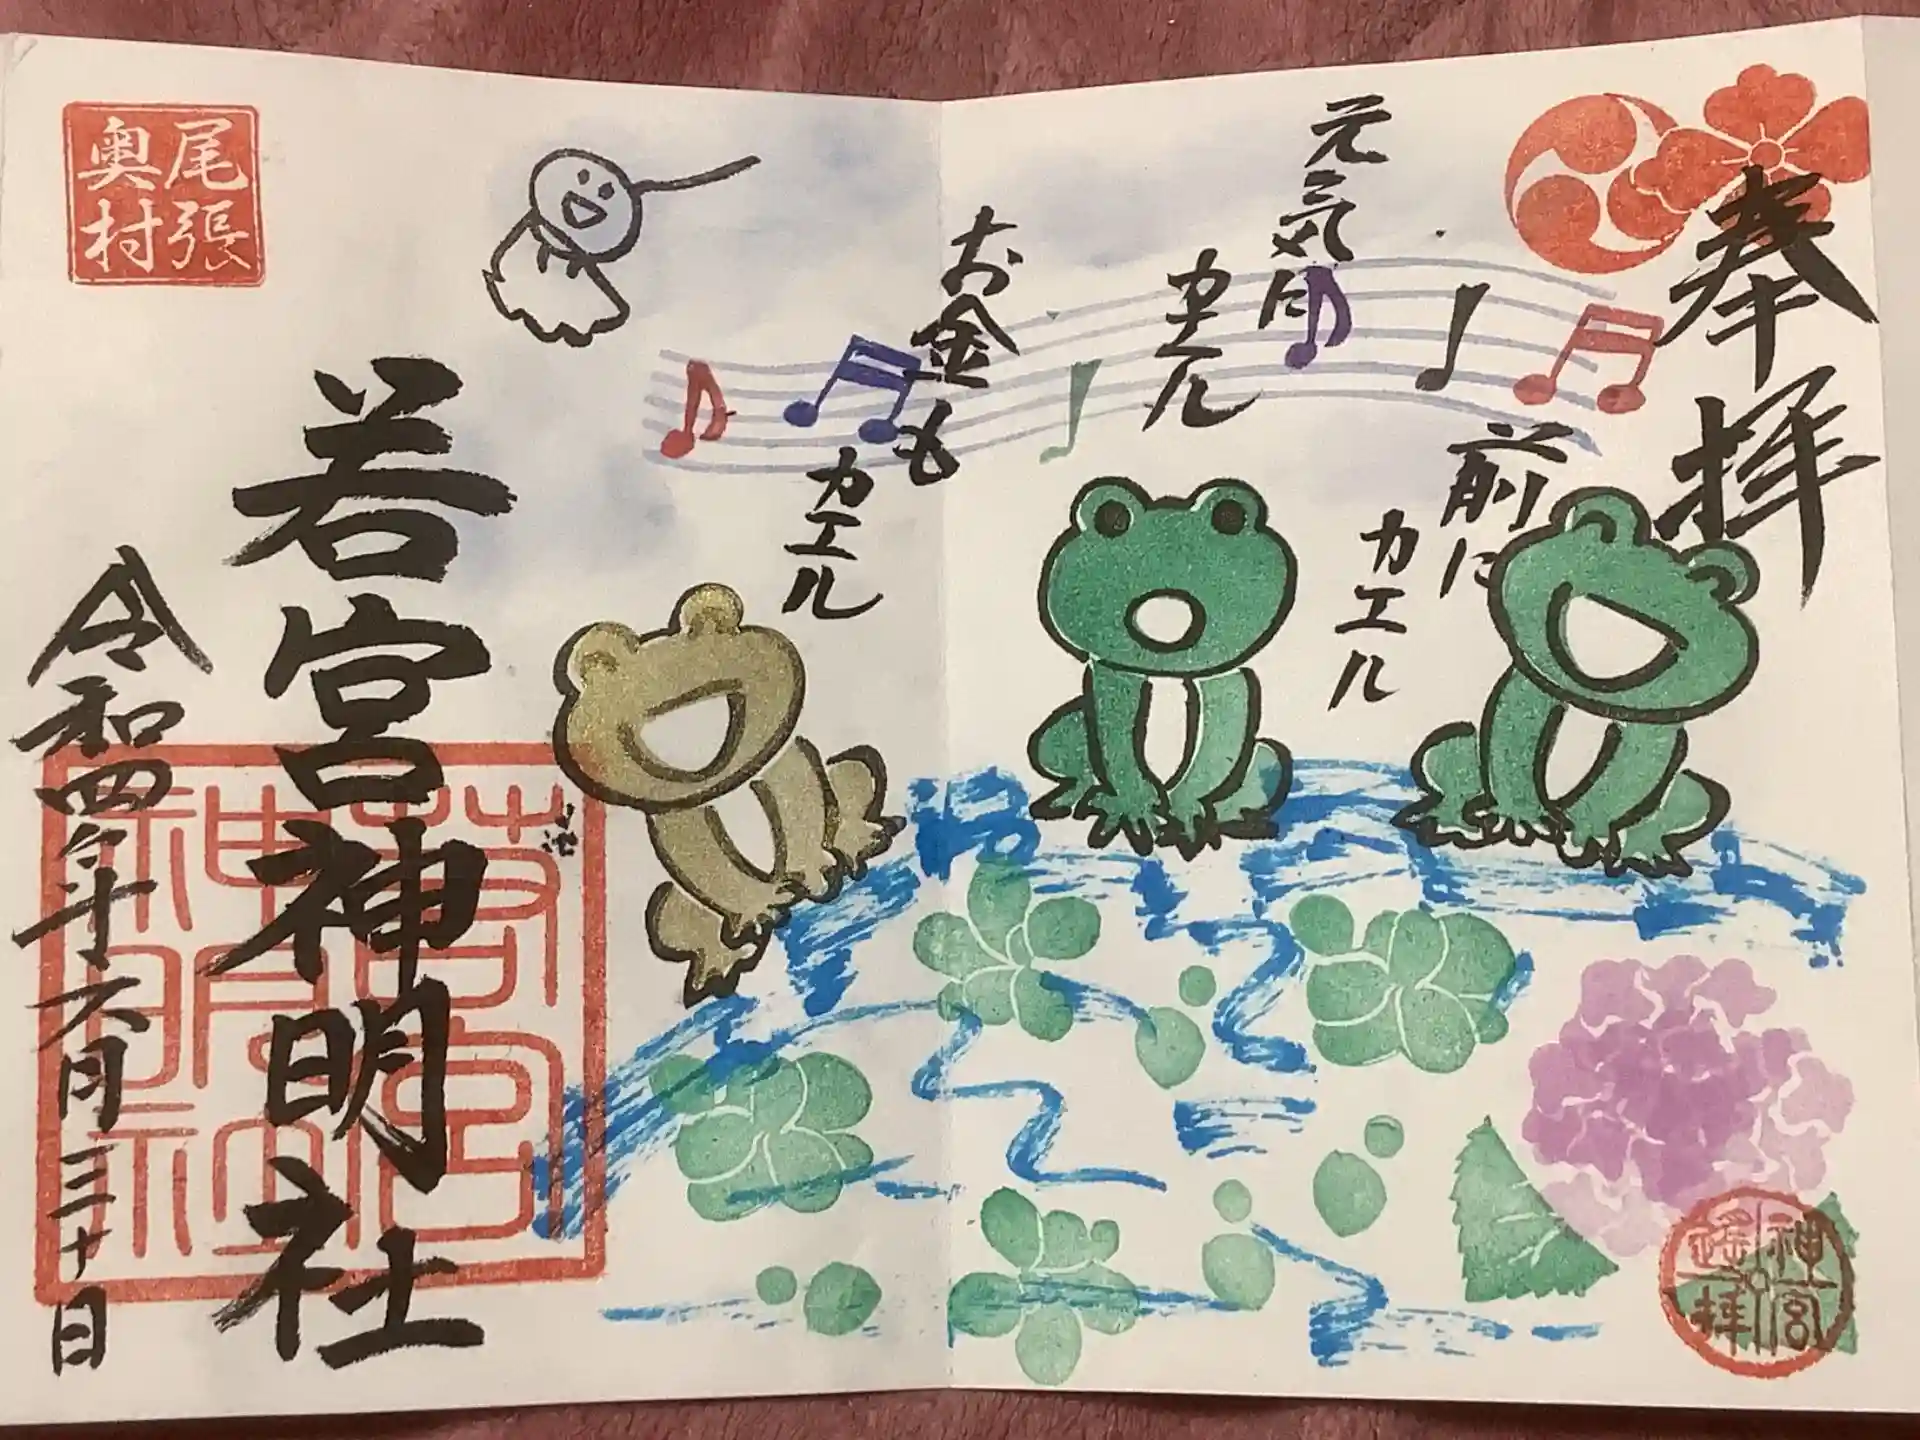 奉拝
前に
カエル
元気に
カエル
お金も
カエル
若宮神明社
令和四年六月三十日
尾張
奥村
若宮
神明社
神宮
遙拝